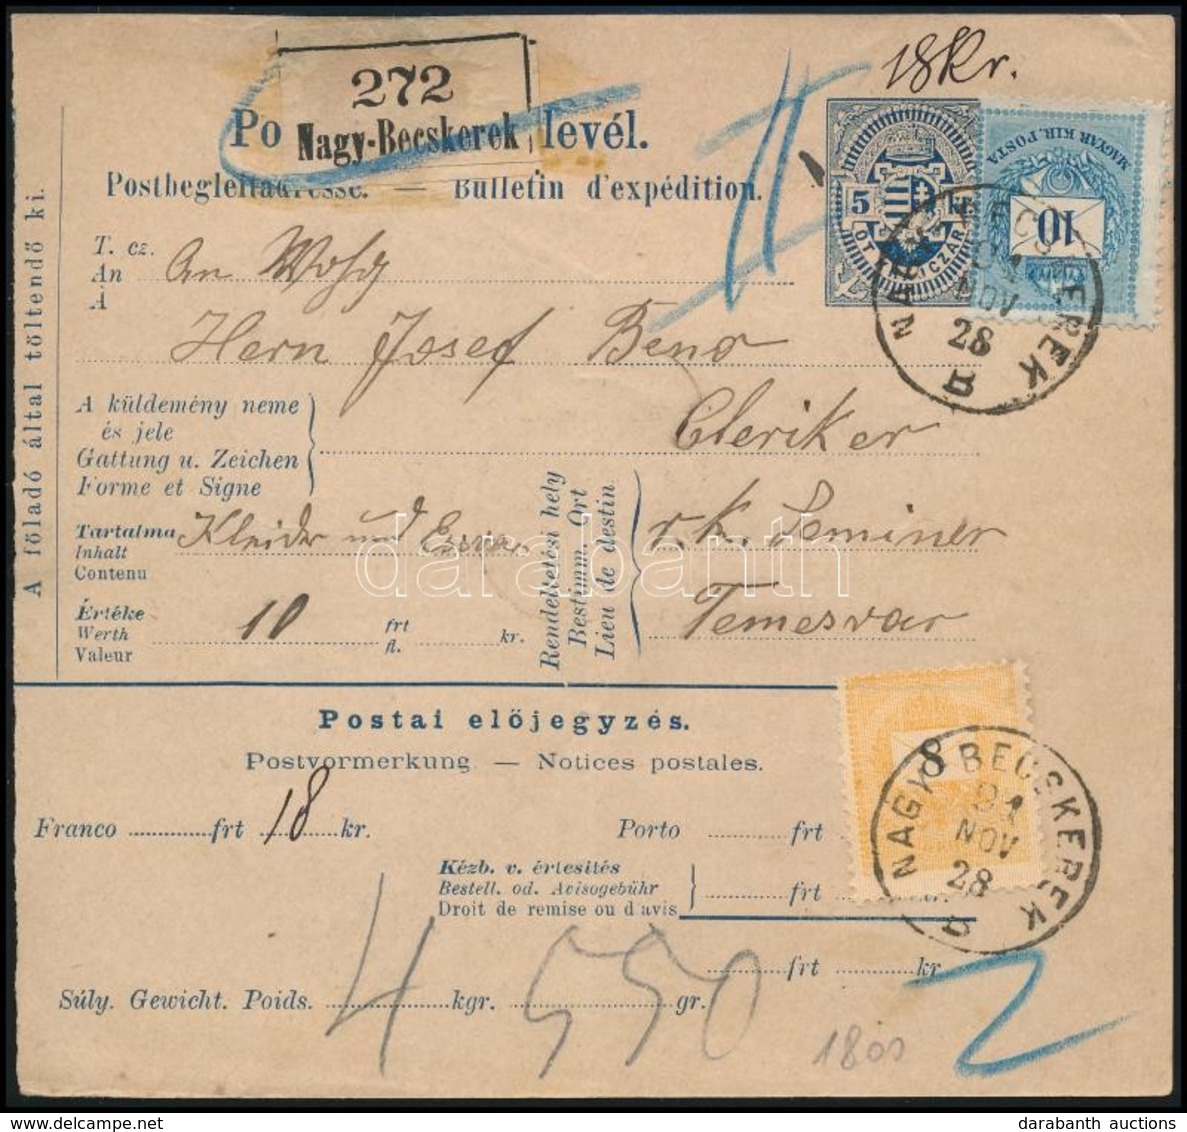 18 Kr.
272
Nagy-Becskerek
Po levél.
Postbegleitadresse. — Bulletin d'expédition.
5 kr
MAGYAR KIR. POSTA
10
NAGY BECSKEREK
91
NOV
28
B
A föladó által töltendő ki.
T. cz.
An
À
An
Herrn Josef Beno
A küldemény neme
és jele
Gattung u. Zeichen
Forme et Signe
Cleriker
Tartalma
Inhalt
Contenu
Kleider und
Rendeltetési hely
Bestimm. Ort
Lieu de destin.
r. k. Seminer
Temesvar
Értéke
Werth
Valeur
10 frt
fl. kr.
darabanth
Postai előjegyzés.
Postvormerkung — Notices postales.
Franco frt 18 kr.
Porto frt
8
NAGY BECSKEREK
91
NOV
28
B
Kézb. v. értesités
Bestell. od. Avisogebühr
Droit de remise ou d'avis
frt kr.
frt kr.
Súly. Gewicht. Poids. 4 kgr. 550 gr.
1800
darabanth auctions